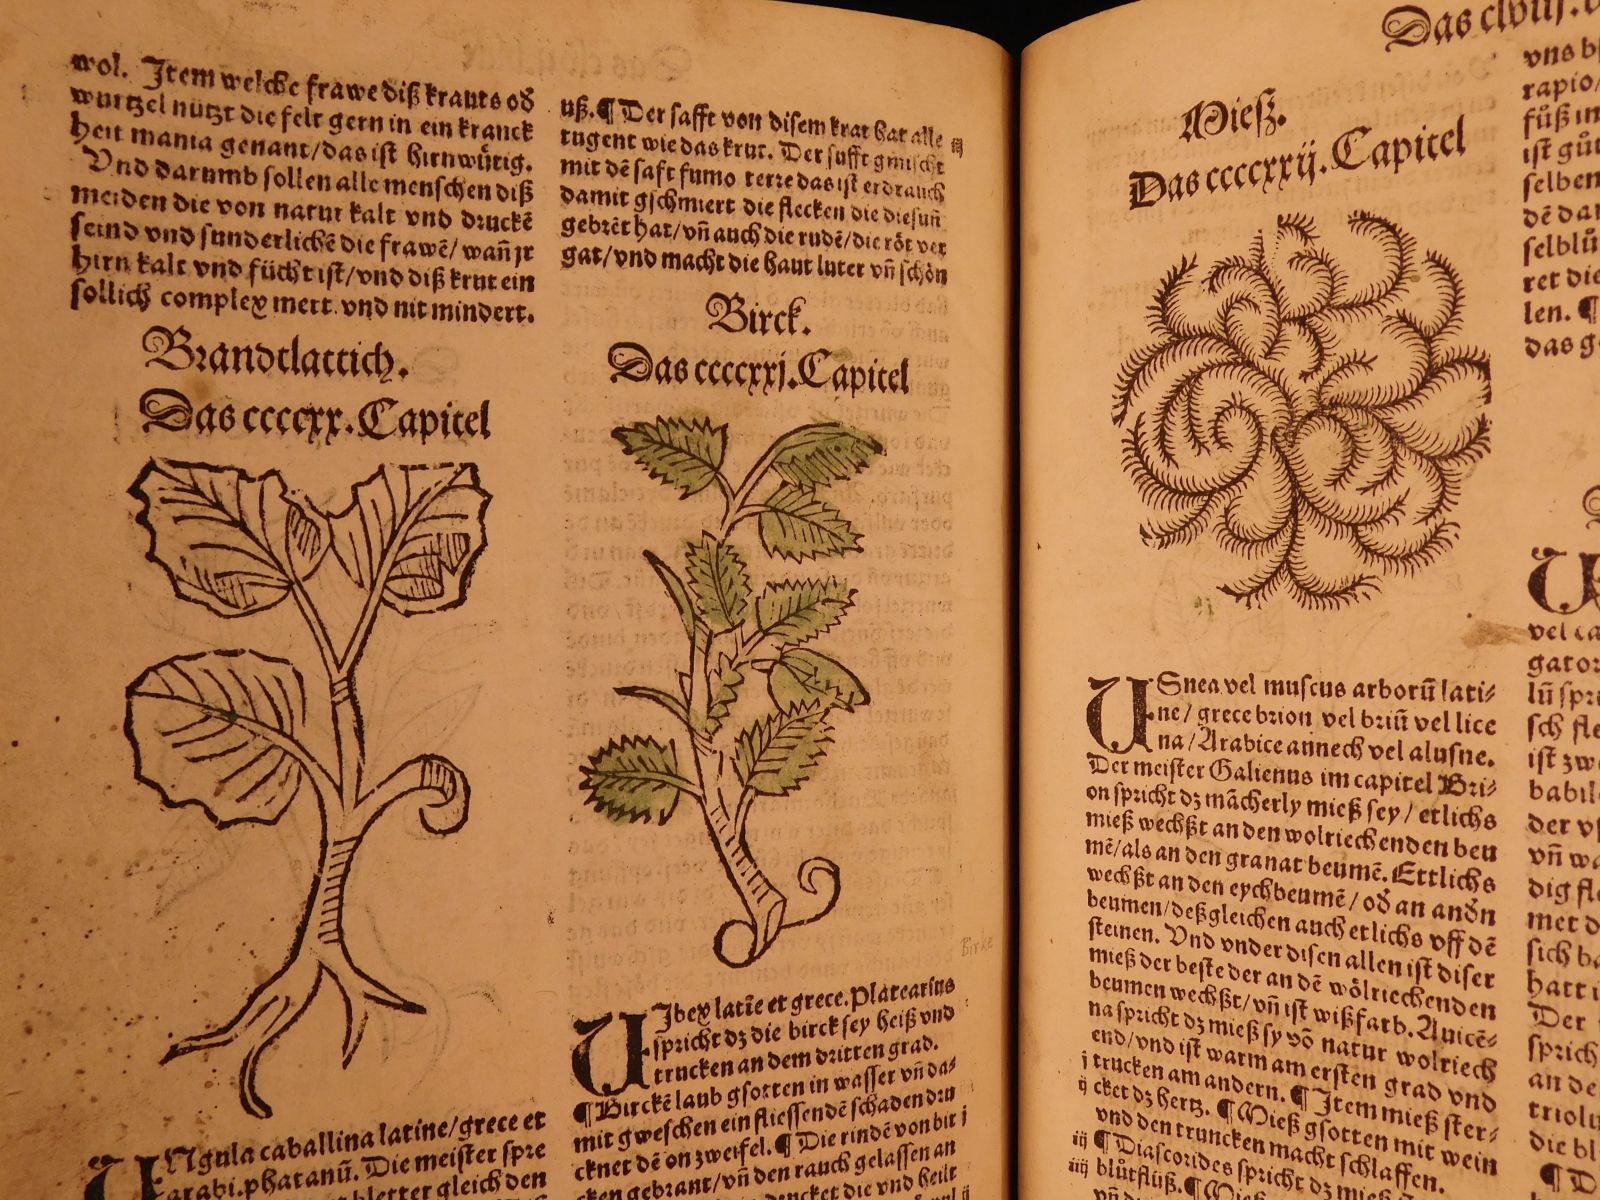 wol. Item welche frawe diß krauts oď
wurtzel nützt die felt gern in ein kranck
heit mania genant/das ist hirnwütig.
Vnd darumb sollen alle menschen diß
meiden die von natur kalt vnd druckē
seind vnd sunderlichē die frawē/wañ jr
hirn kalt vnd fücht ist/vnd diß krut ein
sollich complex mert vnd nit mindert.
Brandtlattich.
Das ccccxx. Capitel
VNgula caballina latine/grece et
arabi. phatanū. Die meister spre
bletter gleich den
uß. ¶ Der safft von disem krat hat alle iij
tugent wie das krut. Der safft gmischt
mit dē saft fumo terre das ist erdrauch
damit gschmiert die flecken die die suñ
gebrēt hat/vñ auch die rudē/die röt ver
gat/vnd macht die haut luter vñ schön
Birck.
Das ccccxxj. Capitel
Birke
VJbex latīe et grece. Platearius
spricht dz die birck sey heiß vnd
trucken an dem dritten grad.
¶ Birckē laub gsotten in wasser vñ da-
mit gweschen ein fliessendē schaden dru j
cknet dē on zweifel. ¶ Die rindē von bir
cken gebrant/vñ den rauch gelassen an
die vnd heilt
Miesz.
Das ccccxxij. Capitel
USnea vel muscus arborū lati-
ne/grece brion vel briū vel lice
na/Arabice annech vel alusne.
Der meister Galienus im capitel Bri-
on spricht dz mācherly mieß sey/etlichs
mieß wechßt an den wolriechenden beu
mē/als an den granat beumē. Ettlichs
wechßt an den eychbeumē/oď an anďn
beumen/deßgleichen auch etlichs vff dē
steinen. Vnd vnder disen allen ist diser
mieß der beste der an dē wölriechenden
beumen wechßt/vñ ist wißfarb. Auicē-
na spricht dz mieß sy vō natur wolriech
end/vnd ist warm am ersten grad vnd
j trucken am andern. ¶ Item mieß ster-
ij cket dz hertz. ¶ Mieß gsotten mit wein
vnd den truncken macht schlaffen.
iij ¶ Diascorides spricht dz mieß
iiij blůtflüß. ¶ Mieß
Das clviij.
vns
rapio/
fůß im
ist gůt
selben
dē dar
selblů
ret die
len. ¶
das g
vel ca
gator
lū spri
sch fle
ist zw
babil
der vs
vñ wa
dig fle
met d
sich ba
hatt
Der
sprich
an de
triolu
die bl